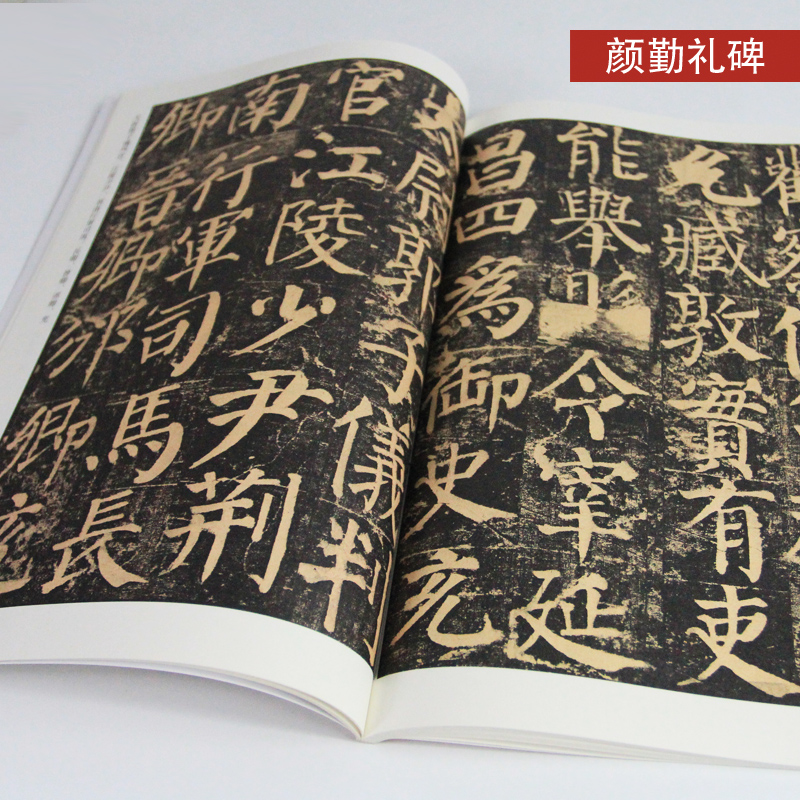 颜勤礼碑
允臧敦實有吏
能舉令宰延
昌四為御史充
尉郭子儀判
官江陵少尹荊
南行軍司馬長
卿晉卿邠卿充